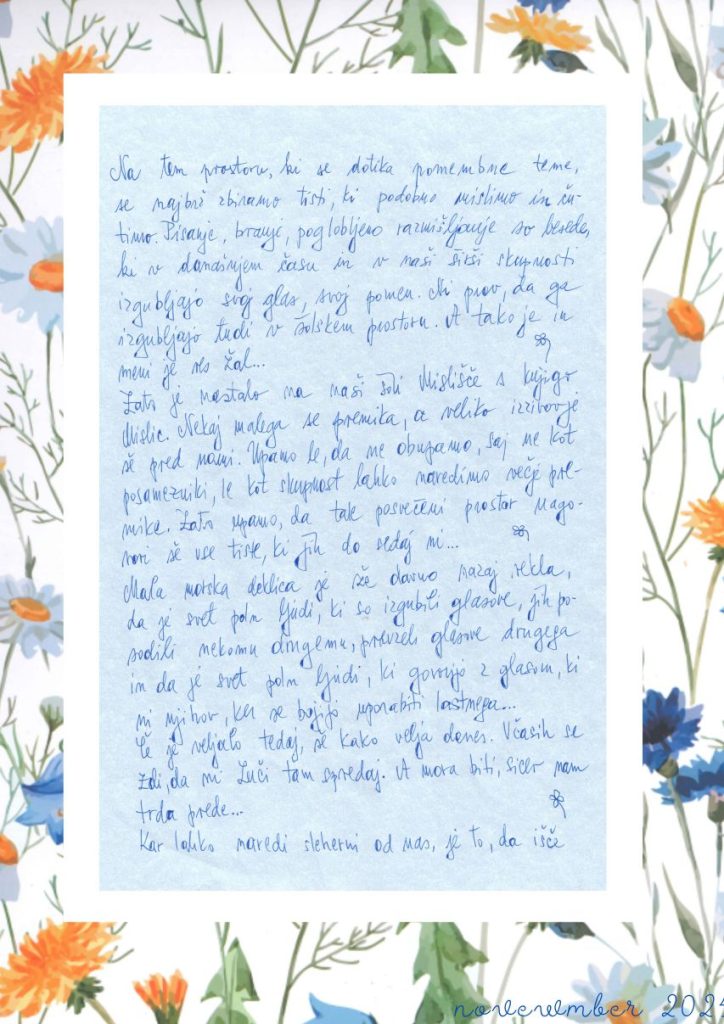 Na tem prostoru, ki se dotika pomembne teme,
se najbrž zbiramo tisti, ki podobno mislimo in ču-
timo. Pisanje, branje, poglobljeno razmišljanje so besede,
ki v današnjem času in v naši širši skupnosti
izgubljajo svoj glas, svoj pomen. Ni prav, da ga
izgubljajo tudi v šolskem prostoru. A tako je in
meni je res žal...
Zato je nastalo na naši šoli Mislišče s knjigo
Mislic. Nekaj malega se premika, a veliko izzivov je
še pred nami. Upamo le, da ne obupamo, saj ne kot
posamezniki, le kot skupnost lahko naredimo večje pre-
mike. Zato upamo, da tak posvečeni prostor nago-
vori še vse tiste, ki jih do sedaj ni...
Mala morska deklica je že davno nazaj rekla,
da je svet poln ljudi, ki so izgubili glasove, jih po-
sodili nekomu drugemu, prevzeli glasove drugega
in da je svet poln ljudi, ki govorijo z glasom, ki
ni njihov, ker se bojijo uporabiti lastnega...
Če je veljalo tedaj, še kako velja danes. Včasih se
zdi, da ni luči tam spredaj. A mora biti, sicer nam
trda prede...
Kar lahko naredi sleherni od nas, je to, da išče